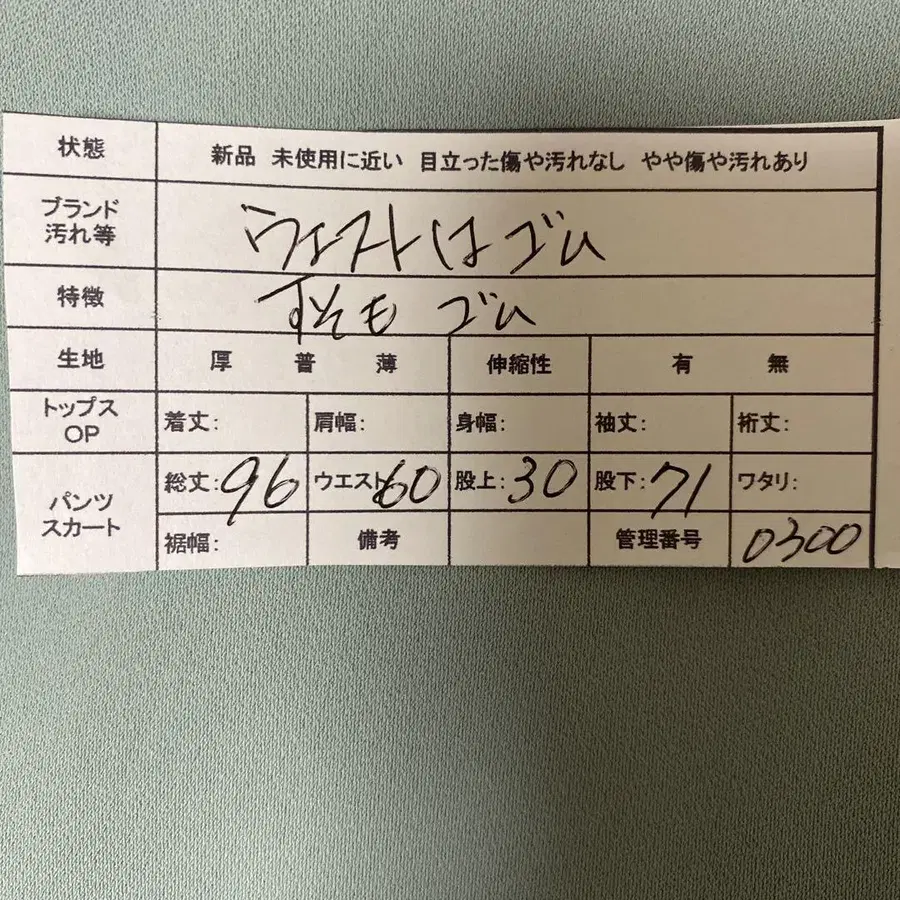 状態 新品 未使用に近い 目立った傷や汚れなし やや傷や汚れあり
ブランド
汚れ等 ウエストはゴム
特徴 すそも ゴム
生地 厚 普 薄 伸縮性 有 無
トップス
OP 着丈: 肩幅: 身幅: 袖丈: 裄丈:
パンツ
スカート 総丈:96 ウエスト60 股上:30 股下:71 ワタリ:
裾幅: 備考 管理番号 0300